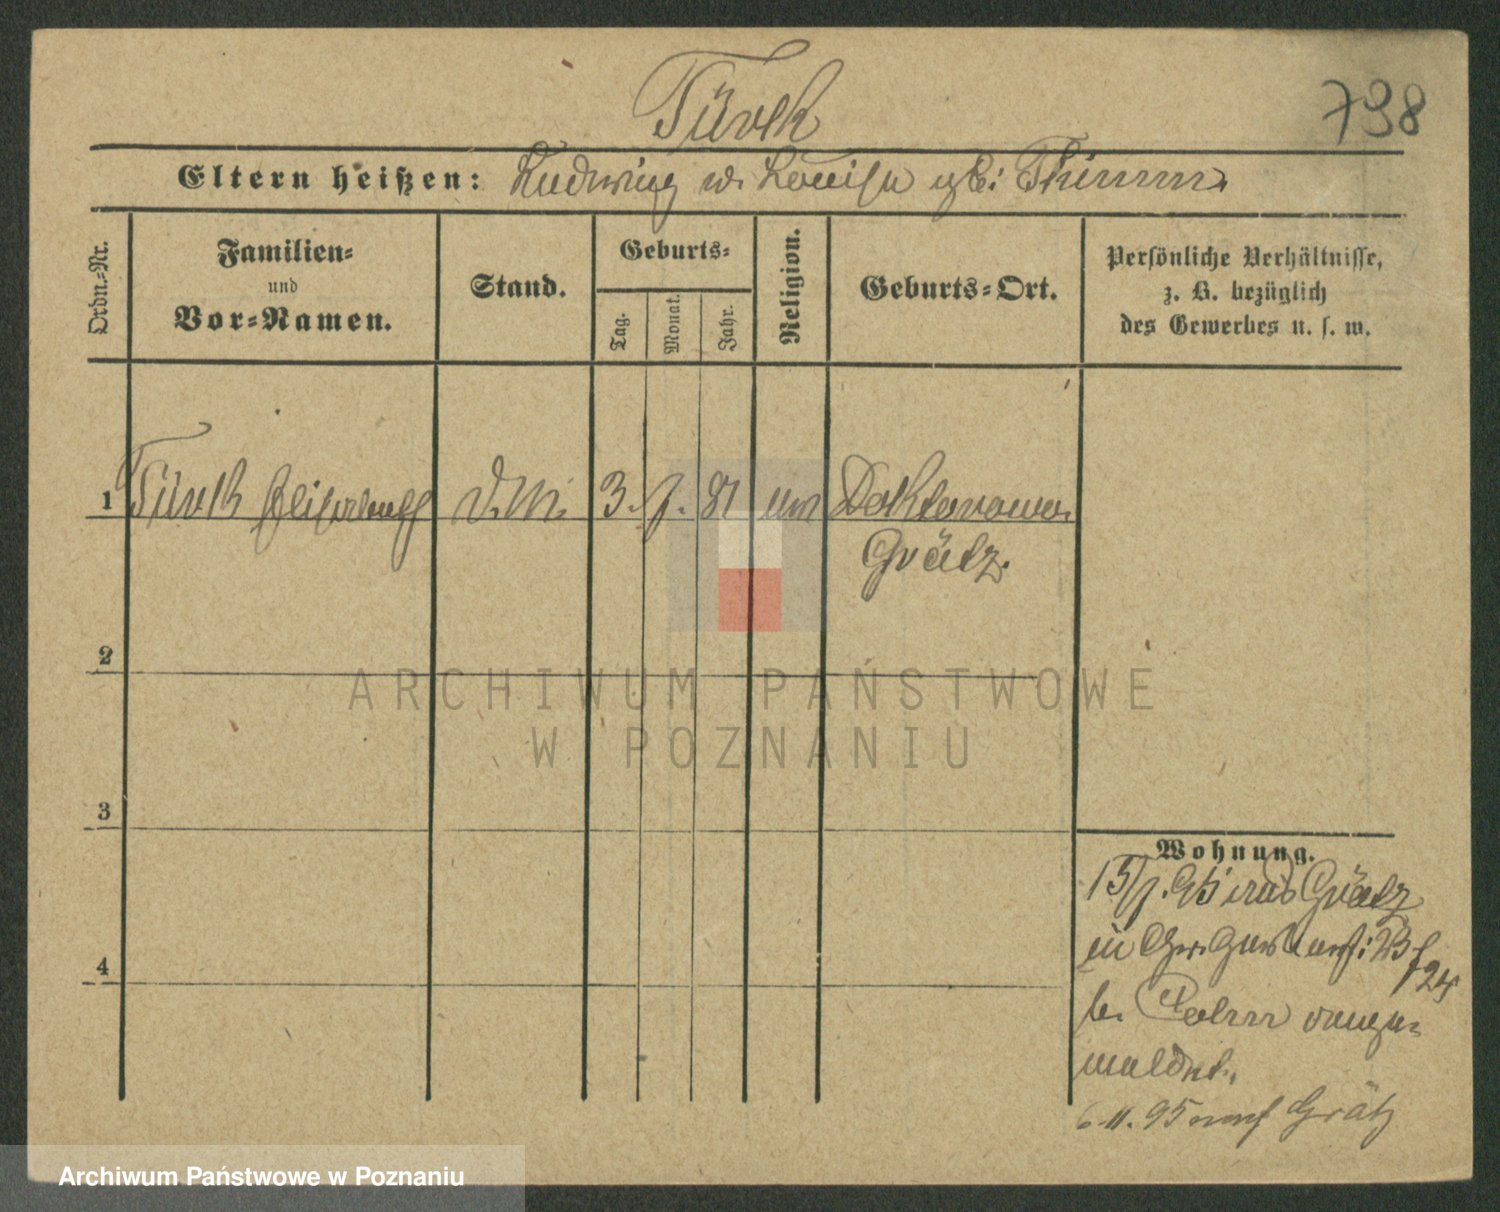 Türk
798
Eltern heißen: Ludwig u. Louise geb: Thimm.
Ordn.-Nr.
Familien-
und
Vor-Namen.
Stand.
Geburts-
Tag.
Monat.
Jahr.
Religion.
Geburts-Ort.
Persönliche Verhältnisse,
z. B. bezüglich
des Gewerbes u. s. w.
1 Türk Elisabeth 3. 7. 81 Doktorowo
Grätz.
2
3
4
Wohnung.
15/7. 95 aus Grätz
in
24
angemeldet.
6.11.95 nach Grätz
ARCHIWUM PAŃSTWOWE
W POZNANIU
Archiwum Państwowe w Poznaniu